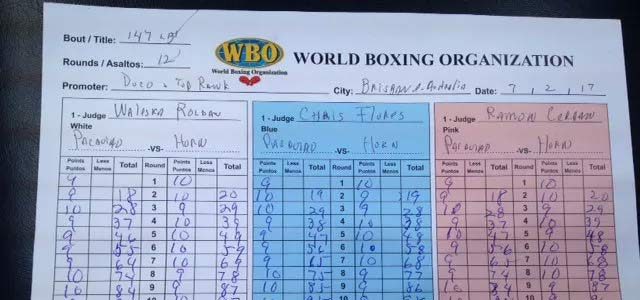 Bout / Title: 147 LBS
Rounds / Asaltos: 12
WBO
World Boxing Organization
WORLD BOXING ORGANIZATION
Promoter: DUCO & TOP RANK City: BRISBANE, Australia Date: 7, 2, 17
1 - Judge WALESKA ROLDAN 1 - Judge CHRIS FLORES 1 - Judge RAMON CERDAN
White Blue Pink
PACQUIAO -VS- HORN PACQUIAO -VS- HORN PACQUIAO -VS- HORN
Points Puntos Less Menos Total Round Points Puntos Less Menos Total Points Puntos Less Menos Total Round Points Puntos Less Menos Total Points Puntos Less Menos Total Round Points Puntos Less Menos Total
9 1 10 9 1 10 9 1 10
9 18 2 10 20 10 19 2 9 19 9 18 2 10 20
10 28 3 9 29 10 29 3 9 28 10 28 3 9 29
9 37 4 10 39 9 38 4 10 38 9 37 4 10 39
9 46 5 10 49 9 47 5 10 48 10 47 5 9 48
9 55 6 10 59 9 56 6 10 58 9 56 6 10 58
9 64 7 10 69 9 65 7 10 68 9 65 7 10 68
10 74 8 9 78 10 75 8 9 77 9 74 8 10 78
10 84 9 9 87 10 85 9 9 86 10 84 9 9 87